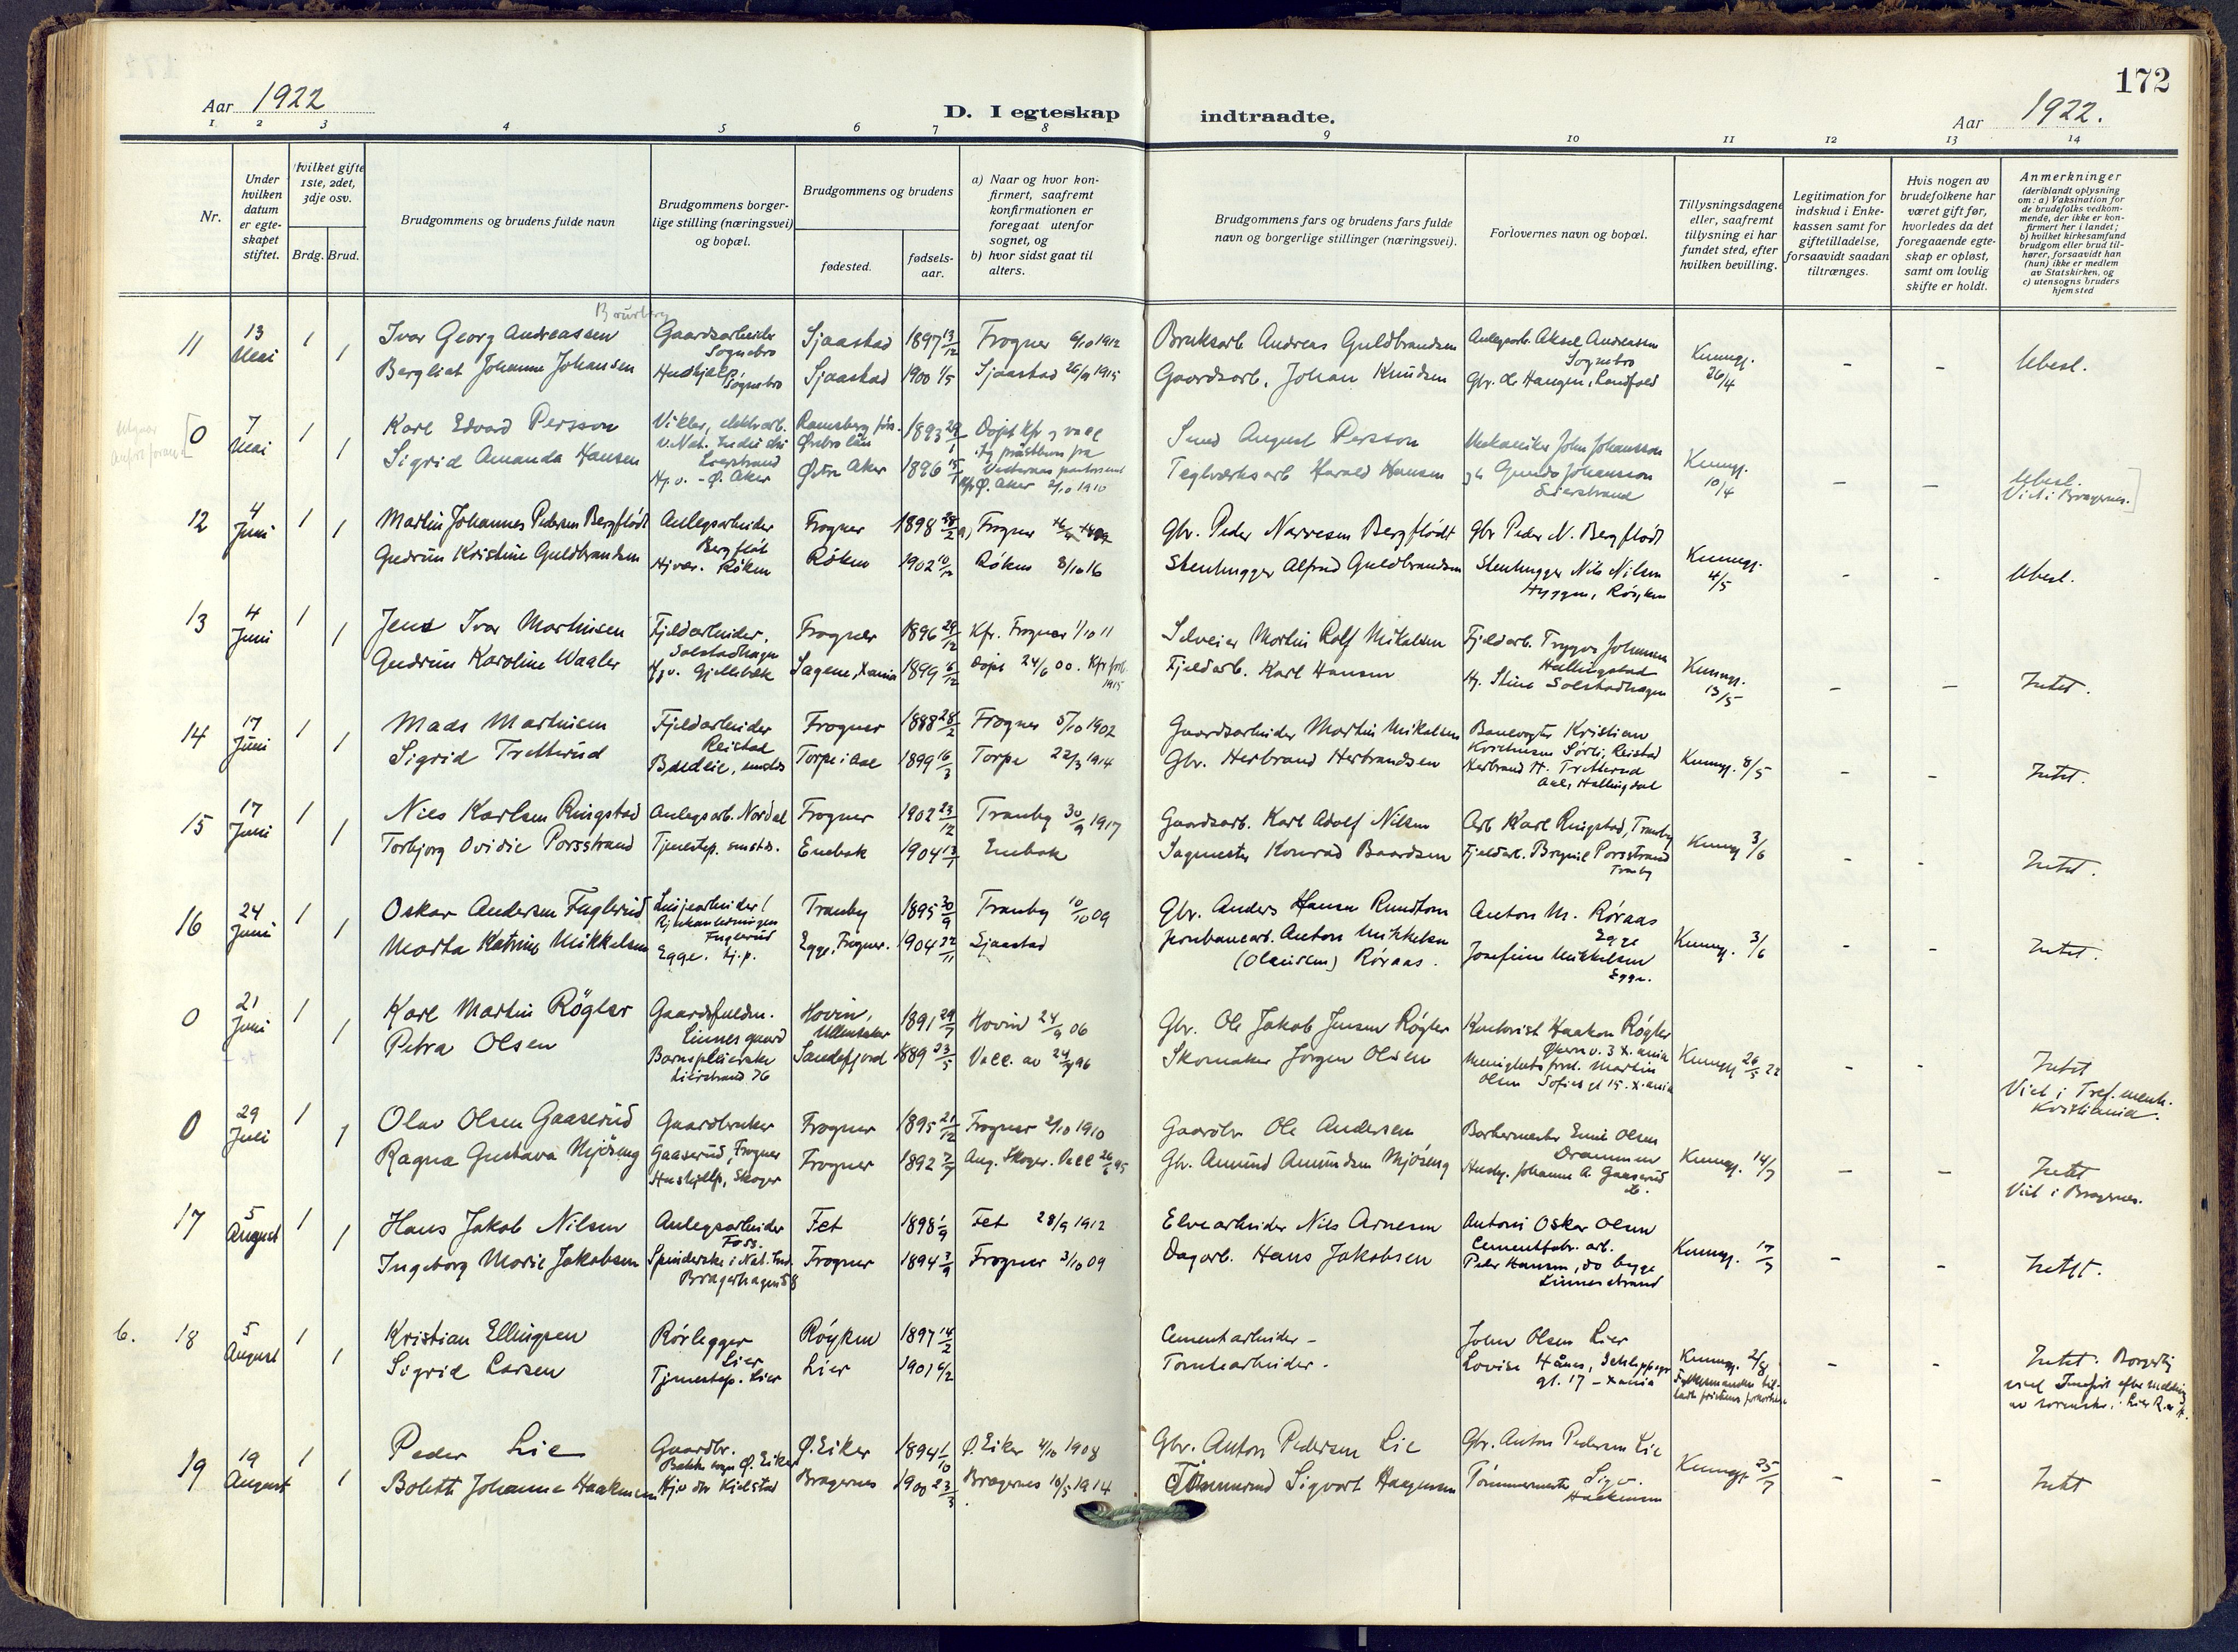 172
Aar 1922
D. I egteskap indtraadte.
Aar 1922.
1 2 3 4 5 6 7 8 9 10 11 12 13 14
Nr.
Under hvilken datum er egteskapet stiftet.
Hvilket gifte 1ste, 2det, 3dje osv.
Brdg. Brud.
Brudgommens og brudens fulde navn
Brudgommens borgerlige stilling (næringsvei) og bopæl.
Brudgommens og brudens
fødested.
fødselsaar.
a) Naar og hvor konfirmert, saafremt konfirmationen er foregaat utenfor sognet, og
b) hvor sidst gaat til alters.
Brudgommens fars og brudens fars fulde navn og borgerlige stillinger (næringsvei).
Forlovernes navn og bopæl.
Tillysningsdagene eller, saafremt tillysning ei har fundet sted, efter hvilken bevilling.
Legitimation for indskud i Enkekassen samt for giftetilladelse, forsaavidt saadan tiltrænges.
Hvis nogen av brudefolkene har været gift før, hvorledes da det foregaaende egteskap er opløst, samt om lovlig skifte er holdt.
Anmerkninger (deriblandt oplysning om: a) Vaksination for de brudefolks vedkommende, der ikke er konfirmert her i landet; b) hvilket kirkesamfund brudgom eller brud tilhører, forsaavidt han (hun) ikke er medlem av Statskirken, og c) utensogns bruders hjemsted
11 13 Mai 1 Ivar Georg Andreassen Gaardsarbeider Sognebro Sjaastad 1897 13/12 Frogner 6/10 1912 Bruksarb. Andreas Guldbrandsen Anlegsarb. Aksel Andreassen Sognebro Kunngj. 26/4 - - Ubesl.
1 Bergliot Johanne Johansen Hushjelp Sognebro Sjaastad 1900 1/5 Sjaastad 26/9 1915 Gaardsarb. Johan Knudsen
0 7 Mai 1 Karl Edvard Persson 1893 Smed August Persson Mekaniker John Johansson Kunngj. 10/4 - - Ubesl. Viet i Bragernes.
1 Sigrid Amanda Hansen Ø. Aker Østre Aker 1896 Ø. Aker 2/10 1910 Teglverksarb Harald Hansen
12 4 Juni 1 Martin Johannes Pedersen Bergflødt Anlegsarbeider Bergflødt Frogner 1898 Frogner Gbr. Peder Narvesen Bergflødt Gbr Peder N. Bergflødt Kunngj. 4/5 - - Ubesl.
1 Gudrun Kristine Guldbrandsen Hjvær. Røken Røken 1902 Røken 8/10 16 Stenhugger Alfred Guldbrandsen Stenhugger Nils Nilsen Hyggen, Røyken
13 4 Juni 1 Jens Ivar Martinsen Fjeldarbeider, Solstadhagen Frogner 1896 29/12 Kfr. Frogner 1/10 11 Martin Rolf Mikalsen Fjeldarb. Trygve Johansen Hallingstad Kunngj. 13/5 - - Intet.
1 Gudrun Karoline Waaler Hjv. Gjellebæk Sagene, Xania 1899 Døpt 24/6 00. Kfr 1915 Fjeldarb. Karl Hansen Hj. Stine Solstadhagen
14 17 Juni 1 Mads Martinsen Fjeldarbeider Reistad Frogner 1888 28/2 Frogner 5/10 1902 Gaardsarbeider Martin Mikalsen Banevogter Kristian Kristiansen Sørli, Reistad Kunngj. 8/5 - - Intet.
1 Sigrid Tretterud Budeie, smsts Torpe i Aal 1899 16/3 Torpe 22/3 1914 Gbr. Herbrand Herbrandsen Herbrand H. Tretterud Aal, Hallingdal
15 17 Juni 1 Nils Karlsen Ringstad Anlegsarb. Nordal Frogner 1902 23/12 Tranby 30/9 1917 Gaardsarb. Karl Adolf Nilsen Arb Karl Ringstad, Tranby Kunng 3/6 - - Intet.
1 Torbjørg Ovidie Porsstrand Tjenestep. smsts. Enebak 1904 Enebak Sagmester Konrad Baardsen Fjeldarb. Brynil Porsstrand Tranby
16 24 Juni 1 Oskar Andersen Fuglerud Linjearbeider Fuglerud Tranby 1895 30/9 Tranby 10/10 09 Gbr. Anders Hansen Rundtom Anton M. Røraas Egge Kunngj. 3/6 - - Intet.
1 Marta Katrine Mikkelsen Egge. Tj.p. Egge, Frogner. 1904 22/11 Sjaastad Jernbanearb. Anton Mikkelsen (Olaussen) Røraas. Josefine Mikkelsen Egge.
0 21 Juni 1 Karl Martin Røgler Gaardsfuldm. Linnes gaard Hovin, Ullensaker 1891 Hovin 24/9 06 Gbr. Ole Jakob Jensen Røgler Kontorist Haakon Røgler Kunngj 26/5 22 - - Intet Viet i Tref. menh. Kristiania.
1 Petra Olsen Barnepleierske Lierstrand 76 Sandefjord 1889 23/5 Vacc. av 24/9 96 Skomaker Jørgen Olsen Menighetsforst. Martin Olsen Sofies gt 15. X.ania
0 29 Juli 1 Olav Olsen Gaaserud Gaardbruker Gaaserud, Frogner Frogner 1895 21/12 Frogner 2/10 1910 Gaardbr Ole Andersen Barbermester Emil Olsen Drammen Kunngj. 14/7 - - Intet Viet i Bragernes.
1 Ragna Gustava Mjøseng Hushjelp, Skoger Frogner 1892 Skoger. Vacc 26/6 95 Gbr. Amund Amundsen Mjøseng Husbj. Johanne A. Gaaserud
17 5 August 1 Hans Jakob Nilsen Anlegsarbeider Foss. Fet 1898 1/9 Fet 28/9 1912 Elvearbeider Nils Arnesen Antoni Oskar Olsen Cementfabr. arb. Kunngj. 17/7 - - Intet.
1 Ingeborg Marie Jakobsen Spinderske i Nat. Ind. Bragerhagen 58 Frogner 1894 3/9 Frogner 3/10 09 Dagarb. Hans Jakobsen Peder Hansen, do begge Linnesstrand
b. 18 5 August 1 Kristian Ellingsen Rørlegger Lier Røyken 1897 14/2 Cementarbeider - John Olsen Lier Kunngj. 2/8 - - Intet. Borgerlig viet
1 Sigrid Larsen Tjenestep. Lier Lier 1901 6/2 Tomtearbeider. Lovise Hånes, Schleppegr gt. 17 - Xania
19 19 August 1 Peder Lie Gaardbr. Ø. Eiker Ø. Eiker 1894 1/10 Ø. Eiker 4/10 1908 Gbr. Anton Pedersen Lie Gbr. Anton Pedersen Lie Kunngj. 25/7 - - Intet
1 Bolett Johanne Haakensen Kjelstad Bragernes 1900 23/3 Bragernes 10/5 1914 Sigvart Haagensen Tømmermester Sigv. Haakensen